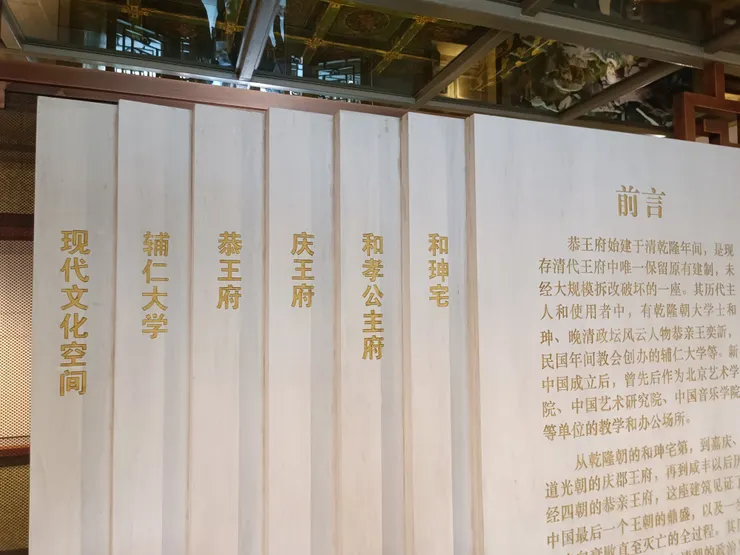 现代文化空间
辅仁大学
恭王府
庆王府
和孝公主府
和珅宅
前言
恭王府始建于清乾隆年间，是现
存清代王府中唯一保留原有建制，未
经大规模拆改破坏的一座。其历代主
人和使用者中，有乾隆朝大学士和
珅、晚清政坛风云人物恭亲王奕䜣，
民国年间教会创办的辅仁大学等。新
中国成立后，曾先后作为北京艺术学
院、中国艺术研究院、中国音乐学院
等单位的教学和办公场所。
从乾隆朝的和珅宅第，到嘉庆、
道光朝的庆郡王府，再到咸丰以后历
经四朝的恭亲王府，这座建筑见证了
中国最后一个王朝的鼎盛，以及一
至灭亡的全过程。其